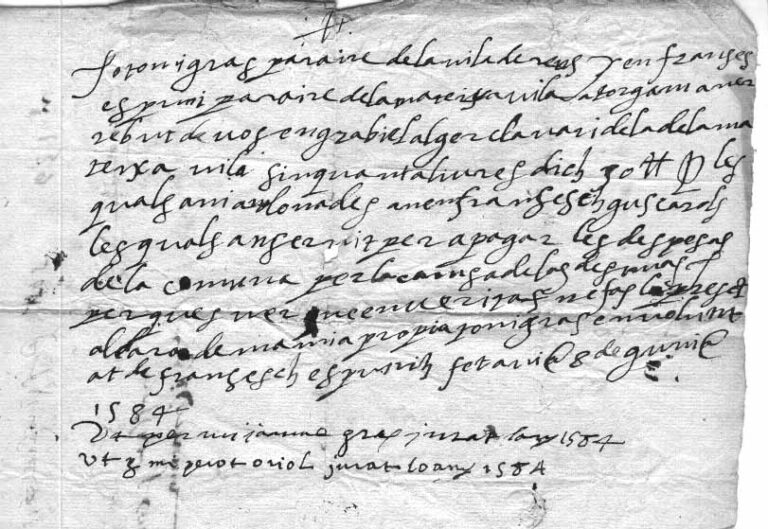 Jo toni gras paraire de la vila de reus y en franses
espuni paraire de la mateixa vila atorgam aver
rebut de vos en grabiel alger clavari de la dela ma
teixa vila sinquanta liures dich 50 ll per les
quals avia donades a nen fransesch guscarols
les quals an servit per a pagar les despesas
de la comuna per la causa de las
per ques ver que en veritat ne fas lo preset
albara de ma mia propia toni gras en
at de fransesch espunih fet avi 8 de guni
1584
Vt per mi jaume grax jurat lany 1584
Vt per mi perot oriol jurat loany 1584